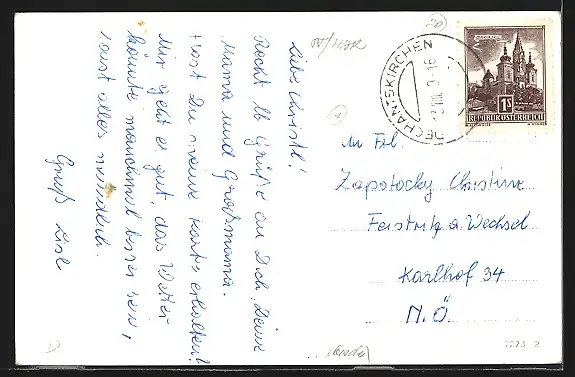 Liebe Christl!
Recht lb Grüße an Dich, Deine
Mama und Großmama.
Hast Du meine Karte erhalten?
Mir geht es gut, das Wetter
könnte manchmal besser sein,
sonst alles
Gruß Lisl
An Frl.
Zapotocky Christine
Feistritz a. Wechsel
Karlhof 34
N.Ö.
DECHANTSKIRCHEN
MARIAZELL
1S
REPUBLIK ÖSTERREICH
20
1
7223 2